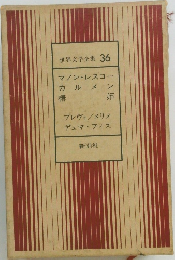 世界文学全集 36
マノン・レスコー
カルメン
椿姫
プレヴォ/メリメ
デュマ・フィス